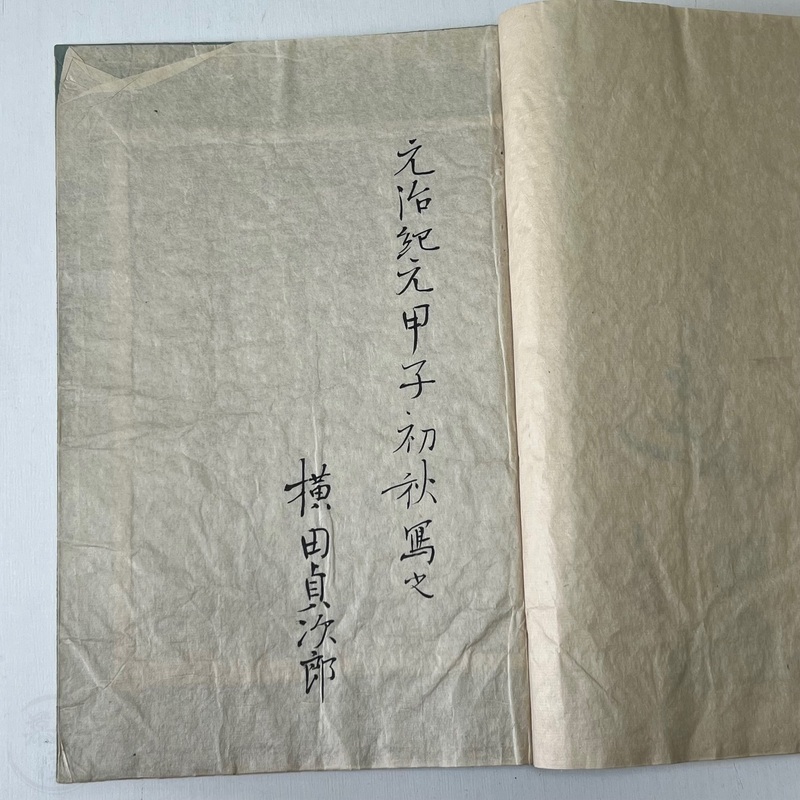 元治紀元甲子初秋寫之
横田貞次郎